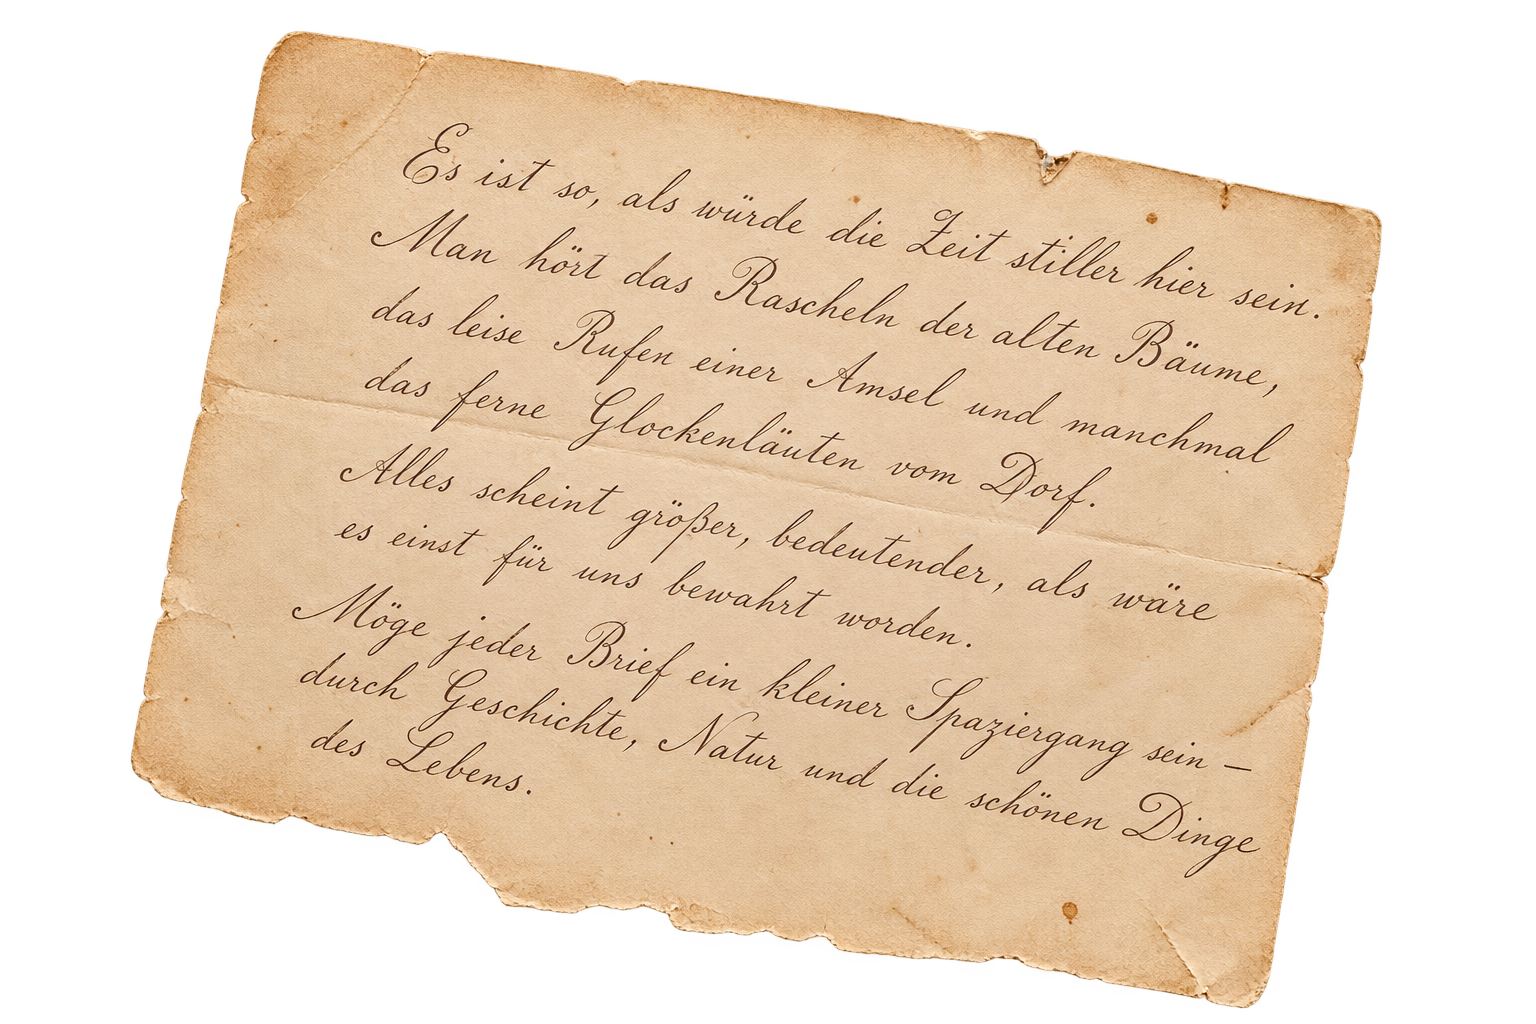 Es ist so, als würde die Zeit stiller hier sein.
Man hört das Rascheln der alten Bäume,
das leise Rufen einer Amsel und manchmal
das ferne Glockenläuten vom Dorf.
Alles scheint größer, bedeutender, als wäre
es einst für uns bewahrt worden.
Möge jeder Brief ein kleiner Spaziergang sein –
durch Geschichte, Natur und die schönen Dinge
des Lebens.